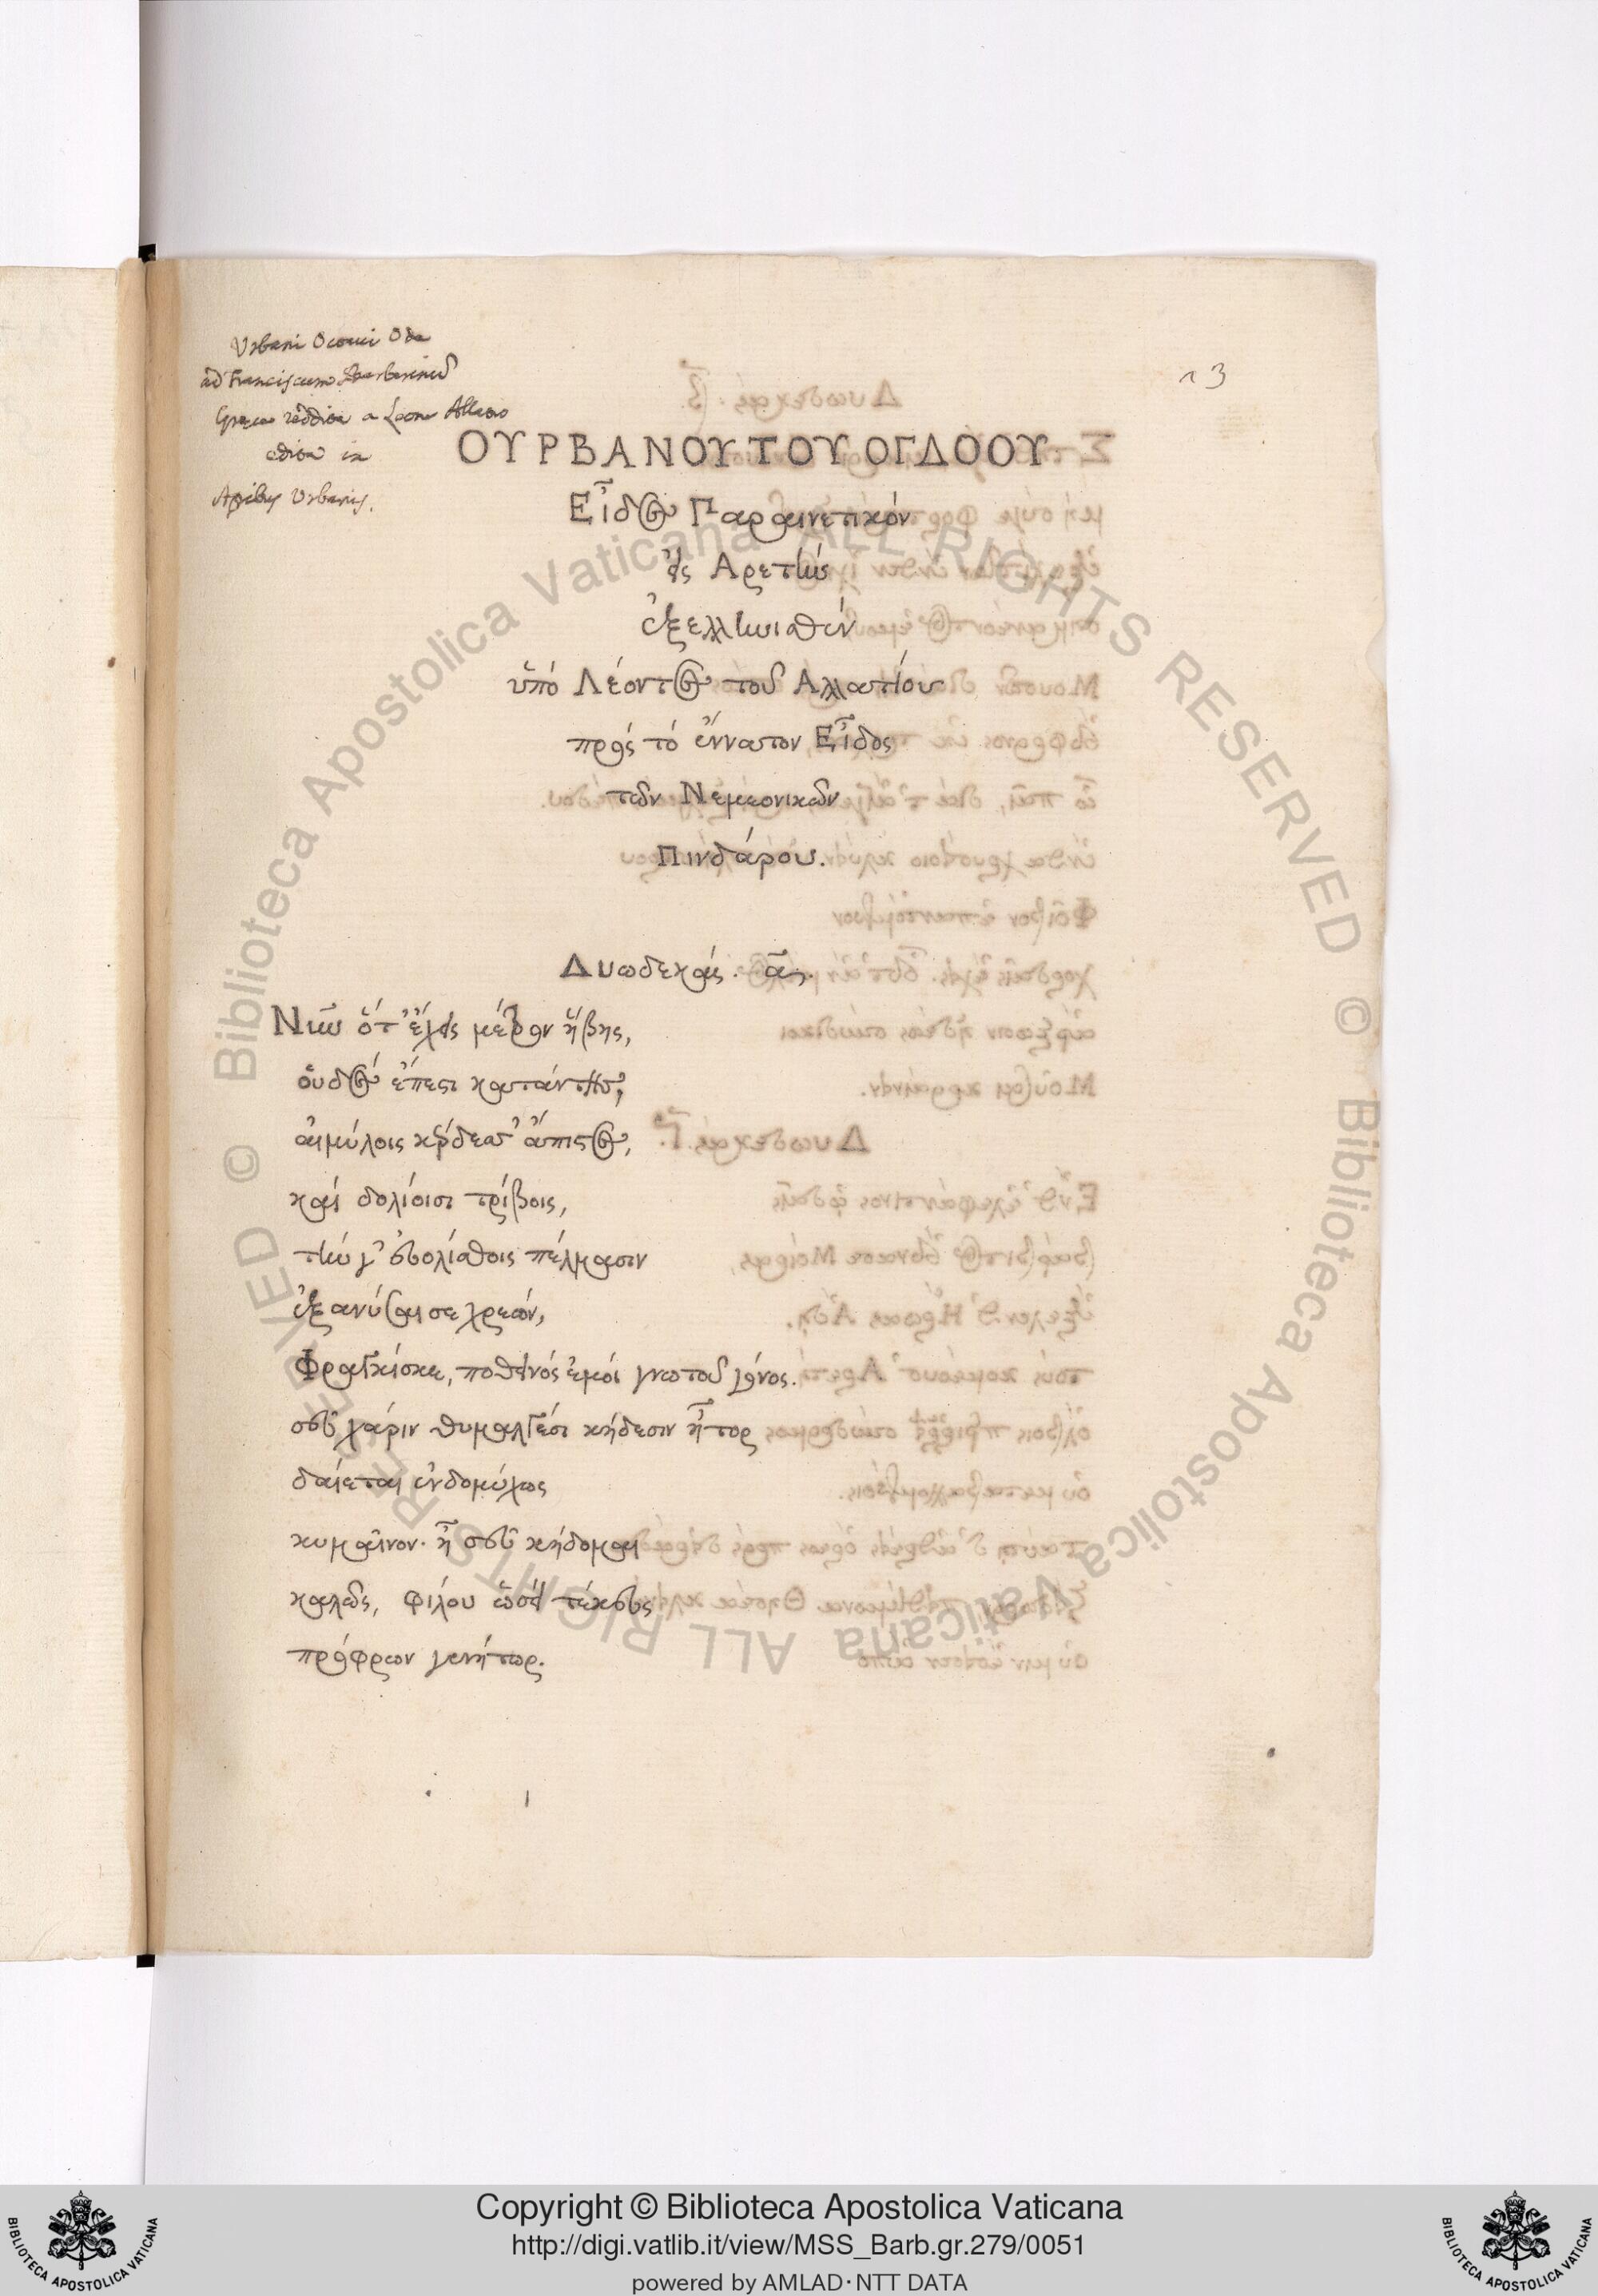 Urbani Octavi Ode
ad Franciscum Barberinum
Graece reddita a Leone Allatio
edita in
Apibus Urbanis.
13
ΟΥΡΒΑΝΟΥ ΤΟΥ ΟΓΔΟΟΥ
Εἶδος Παραινετικόν
εἰς Αρετήν
ἐξελληνισθέν
ὑπό Λέοντος τοῦ Αλλατίου
πρός τό ἔννατον Εἶδος
τῶν Νεμεονικῶν
Πινδάρου.
Δυωδεκάς. α.
Νῦν ὅτ' ἔχεις μέτρον ἥβης,
οὐδός ἔπεσι κατάντης,
αἱμύλοις κέρδεσ' ἄπιστος,
καί δολίοισι τρίβοις,
τήν γ' εὐολίσθοις πέλμασιν
ἐξανύσαι σε χρεών,
Φραγκίσκε, ποθεινός ἐμοί γνωτοῦ γόνος.
σοῦ χάριν θυμαλγέσι κήδεσιν ἦτορ
δαίεται ἐνδομύχως
κυμαῖνον. ἦ σοῦ κήδομαι
καλῶς, φίλου ὡσεί τέκους
πρόφρων γενήτωρ.
Copyright © Biblioteca Apostolica Vaticana
http://digi.vatlib.it/view/MSS_Barb.gr.279/0051
powered by AMLAD·NTT DATA
BIBLIOTECA APOSTOLICA VATICANA
BIBLIOTECA APOSTOLICA VATICANA
© Biblioteca Apostolica Vaticana ALL RIGHTS RESERVED
© Biblioteca Apostolica Vaticana ALL RIGHTS RESERVED